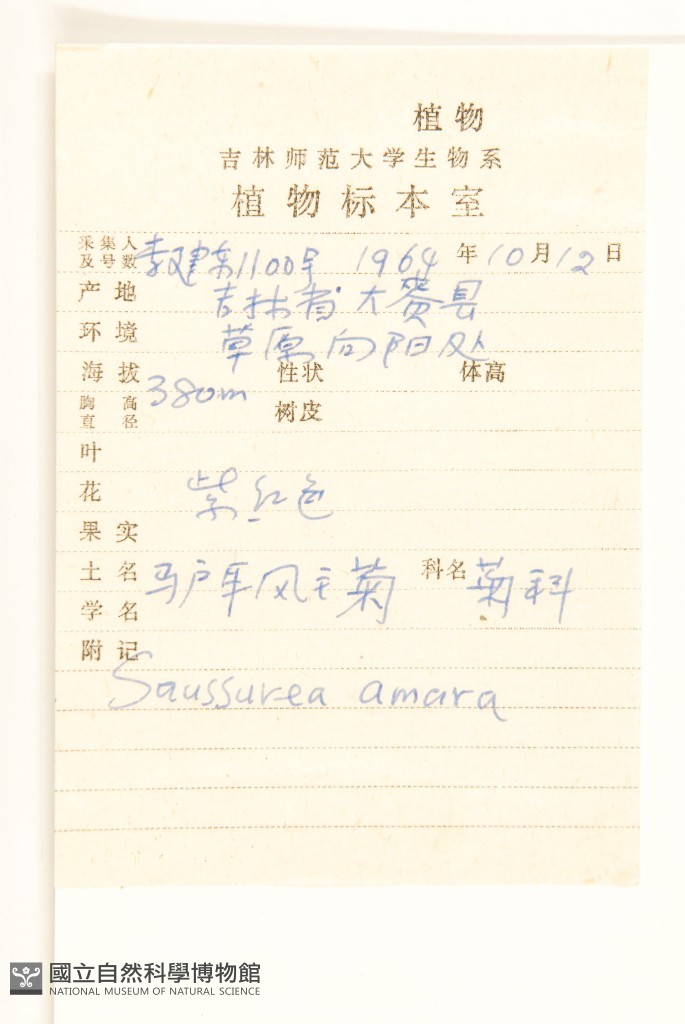 植物
吉林师范大学生物系
植物标本室
采集人及号数 李建东1100号 1964年10月12日
产地 吉林省大赉县
环境 草原向阳处
海拔 380m 性状 体高
胸高直径 树皮
叶
花 紫红色
果实
土名 科名 菊科
学名
附记
Saussurea amara
國立自然科學博物館
NATIONAL MUSEUM OF NATURAL SCIENCE